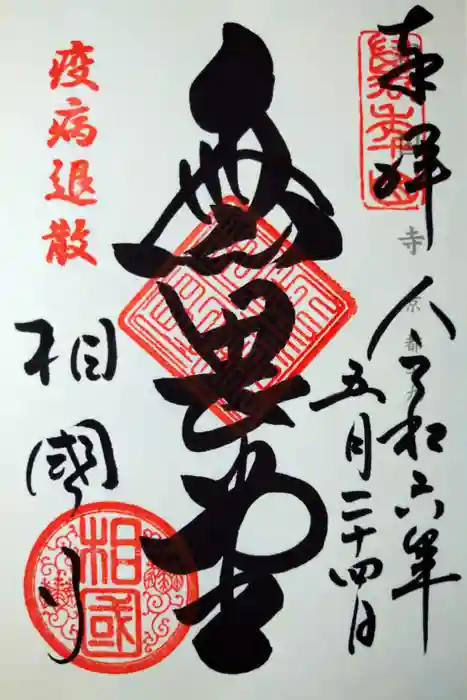 奉拝
令和六年
五月二十四日
無畏堂
疫病退散
相國寺
相國
寺
京都